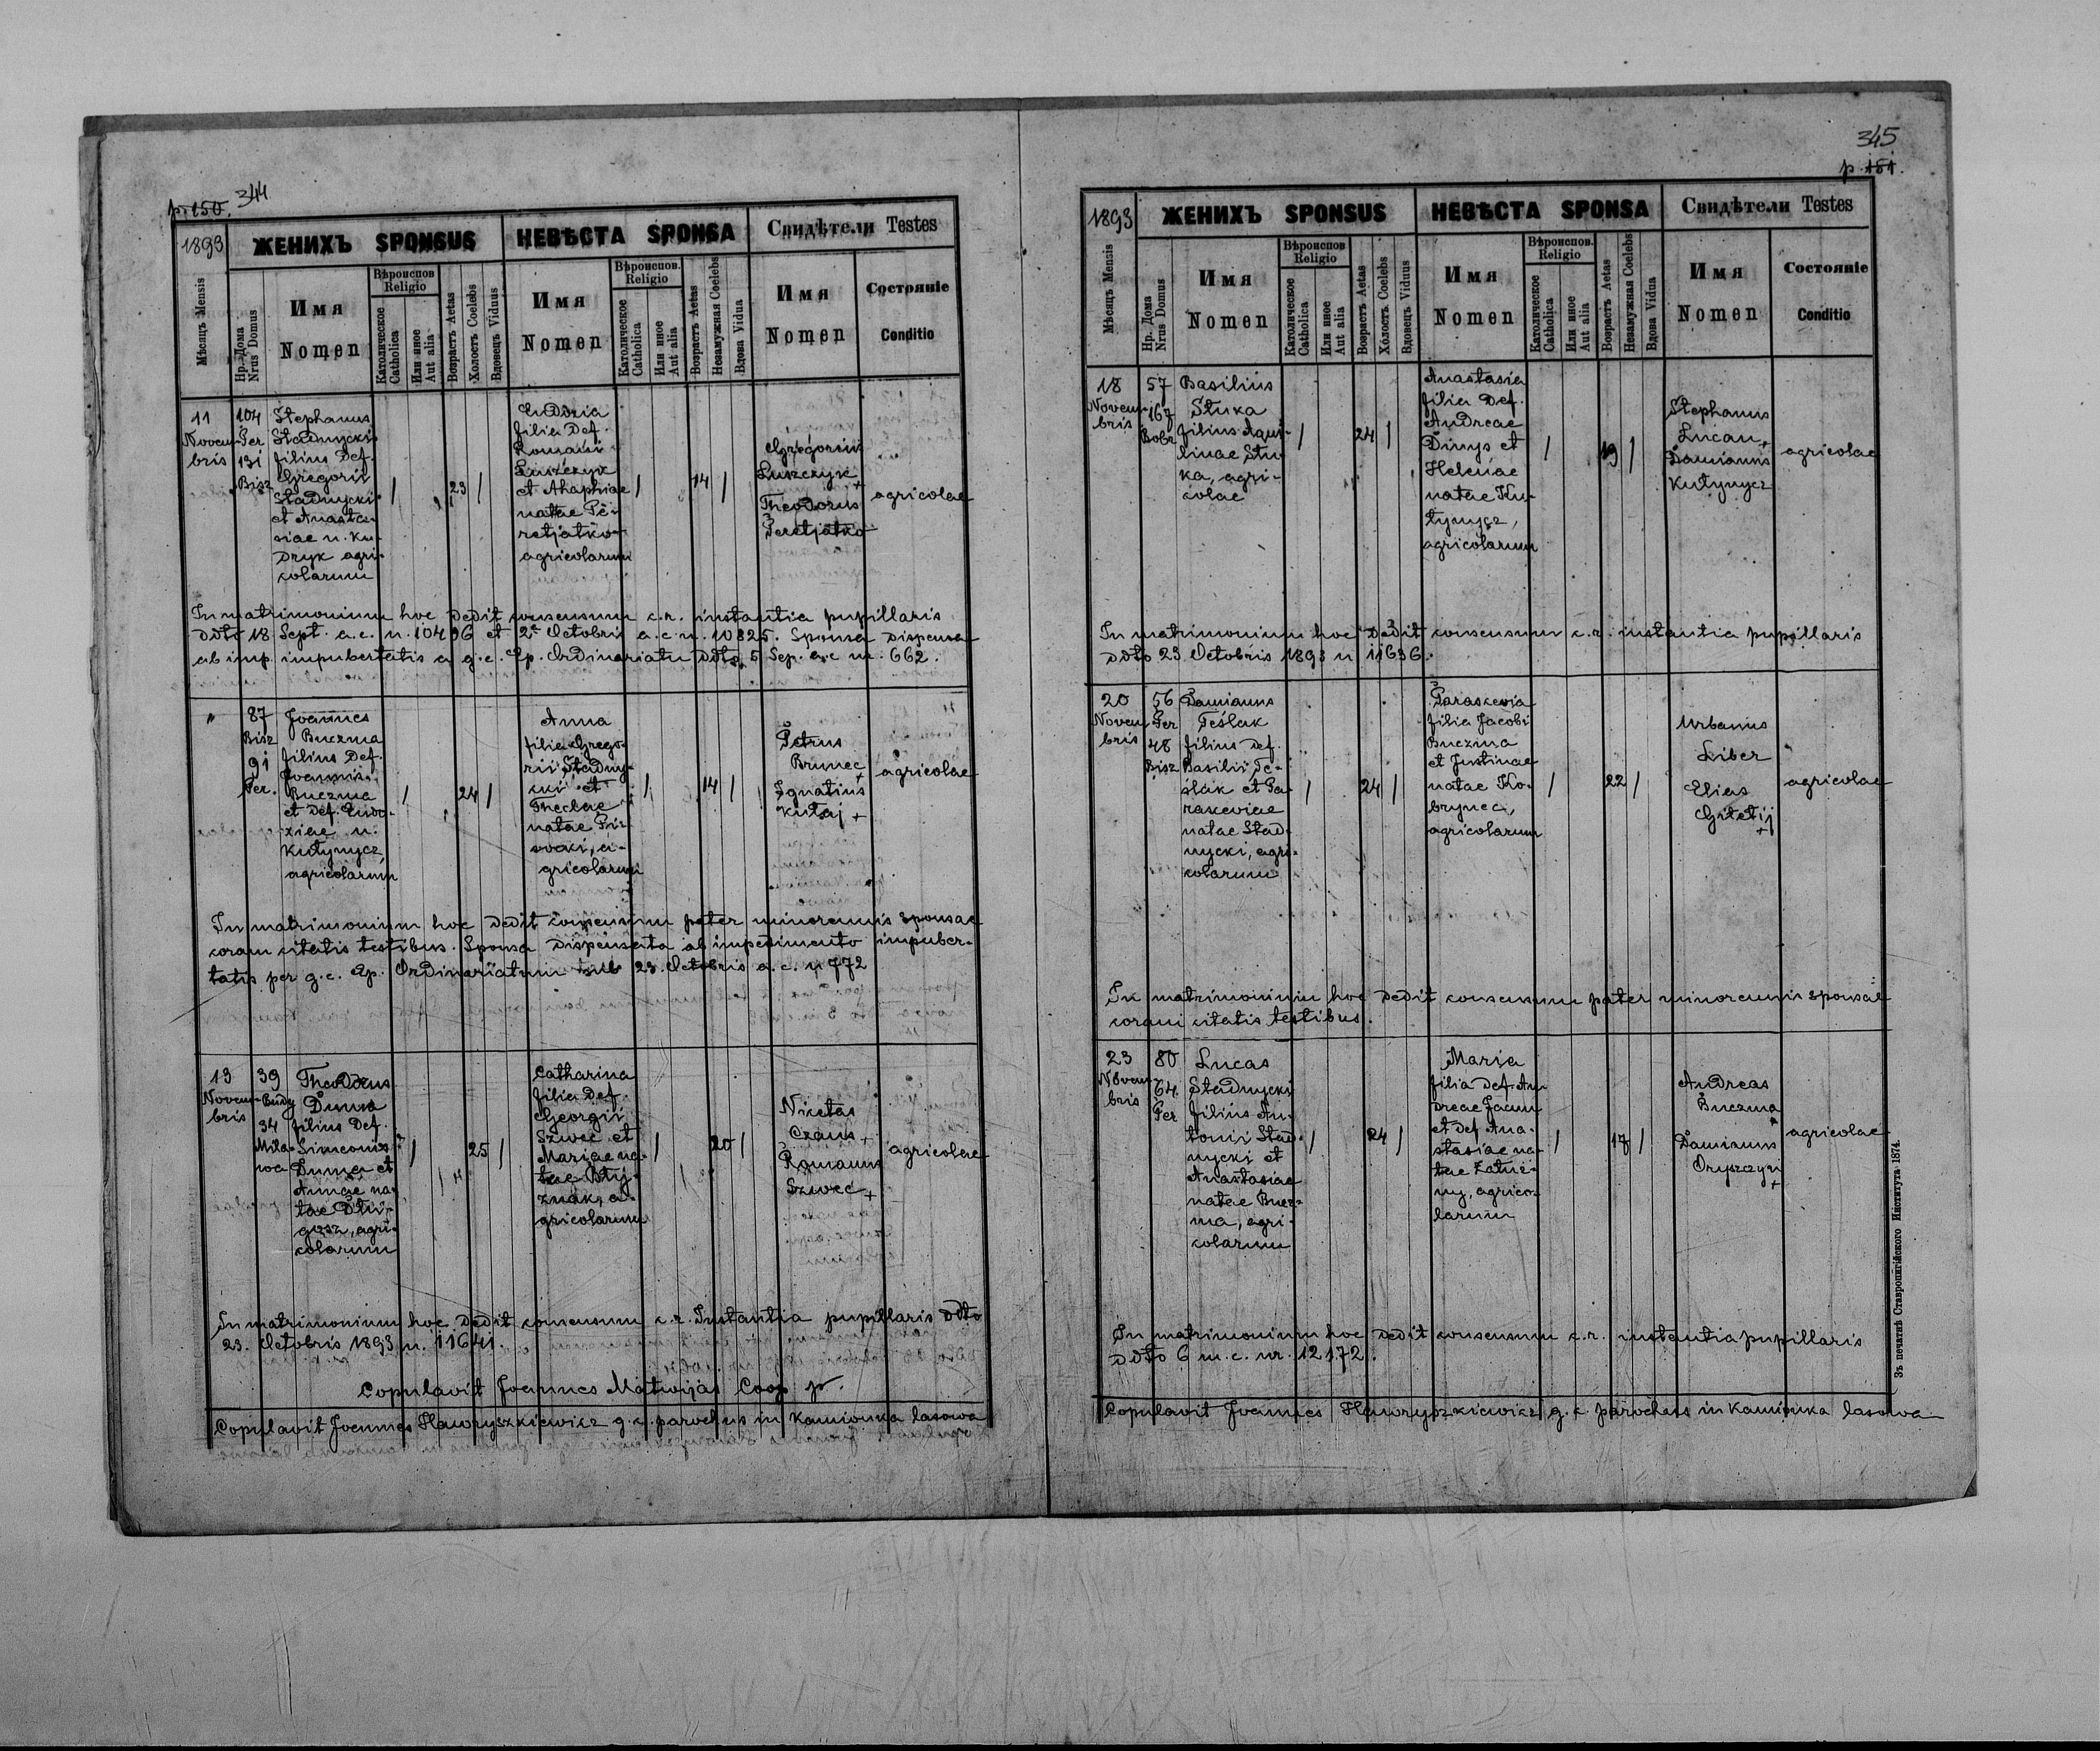 p. 150. 344
1893 ЖЕНИХЪ SPONSUS НЕВѢСТА SPONSA Свидѣтели Testes
Мѣсяцъ Mensis
Нр. Дома Nrus Domus
Имя Nomen
Вѣроиспов. Religio
Католическое Catholica
Или иное Aut alia
Возрастъ Aetas
Холостъ Coelebs
Вдовецъ Viduus
Имя Nomen
Вѣроиспов. Religio
Католическое Catholica
Или иное Aut alia
Возрастъ Aetas
Незамужная Coelebs
Вдова Vidua
Имя Nomen
Состоянiе Conditio
11
Novem-
bris
104
Per
131
Bisz
Stephanus
Stadnycki
filius Def.
Gregorii
Stadnycki
et Anasta-
siae n. Ku-
dryk agri-
colarum
/ 23 /
Eudoxia
filia Def.
Romani
Łuszczyk
et Ahaphiae
natae Pe-
retjatko
agricolarum
/ 14 /
Gregorius
Łuszczyk
+
Theodorus
Peretjatko
agricolae
In matrimonium hoc dedit consensum c.r. instantia pupillaris
ddto 18 Sept. a.c. n. 10496 et 2 Octobris a.c. n. 10825. Sponsa dispensa
ab imp. impubertatis a g.c. Ep. Ordinariatu ddto 5 Sep. a.c. n. 662.
"
87
Bisz
91
Per.
Joannes
Buczma
filius Def.
Joannis
Buczma
et Def. Eudo-
xiae n.
Kutynycz
agricolarum
/ 24 /
Anna
filia Grego-
rii Stadny-
cki et
Theclae
natae
agricolarum
/ 14 /
Petrus
Brunec
+
Ignatius
Kutaj +
agricolae
In matrimonium hoc dedit consensum pater minorennis sponsae
coram citatis testibus. Sponsa dispensata ab impedimento impuber-
tatis per g.c. Ep. Ordinariatum sub 23. Octobris a.c. n 772
13
Novem-
bris
39
Budy
34
Mila-
nowa
Theodorus
Duma
filius Def.
Simeonis
Duma et
Annae na-
tae
agri-
colarum
/ 25 /
Catharina
filia Def.
Georgii
Szwec et
Mariae na-
tae
a-
gricolarum
/ 20 /
Nicetas
Czaus +
Romanus
Szwec +
agricolae
In matrimonium hoc dedit consensum c.r. Instantia pupillaris ddto
23. Octobris 1893 n. 11641.
Copulavit Joannes Matwijas Coop
Copulavit Joannes Hawryszkiewicz g.c. parochus in Kamionka lasowa
345
p. 151.
1893 ЖЕНИХЪ SPONSUS НЕВѢСТА SPONSA Свидѣтели Testes
Мѣсяцъ Mensis
Нр. Дома Nrus Domus
Имя Nomen
Вѣроиспов. Religio
Католическое Catholica
Или иное Aut alia
Возрастъ Aetas
Холостъ Coelebs
Вдовецъ Viduus
Имя Nomen
Вѣроиспов. Religio
Католическое Catholica
Или иное Aut alia
Возрастъ Aetas
Незамужная Coelebs
Вдова Vidua
Имя Nomen
Состоянiе Conditio
18
Novem-
bris
57
167
Bobr
Basilius
Stuka
filius Aqui-
linae Stu-
ka, agri-
colae
/ 24 /
Anastasia
filia Def.
Andreae
Dmys et
Helenae
natae Ku-
tynycz,
agricolarum
/ 19 /
Stephanus
Lucan +
Damianus
Kutynycz
agricolae
In matrimonium hoc dedit consensum c.r. instantia pupillaris
ddto 23 Octobris 1893 n 11636.
20
Novem
bris
56
Per
48
Bisz
Damianus
Teslak
filius Def.
Basilii Te-
slak et Pa-
raskeviae
natae Stad-
nycki, agri-
colarum
/ 24 /
Paraskevia
filia Jacobi
Buczma
et Justinae
natae Ko-
brynec,
agricolarum
/ 22 /
Urbanus
Liber
Elias
Gitetij
+
agricolae
In matrimonium hoc dedit consensum pater minorennis sponsae
coram citatis testibus.
23
Novem-
bris
80
64.
Per
Lucas
Stadnycki
filius An-
tonii Stad-
nycki et
Anastasiae
natae Bucz-
ma, agri-
colarum
/ 24 /
Maria
filia Def. An-
dreae Jacum
et Def. Ana-
stasiae na-
tae
agrico-
larum
/ 18 /
Andreas
Buczma
+
Damianus
Oryszczyn
+
agricolae
In matrimonium hoc dedit consensum c.r. instantia pupillaris
ddto 6 m.c. nr. 12172.
Copulavit Joannes Hawryszkiewicz g.c. parochus in Kamionka lasowa
Зъ печатнѣ Ставропигiйского Института 1874.